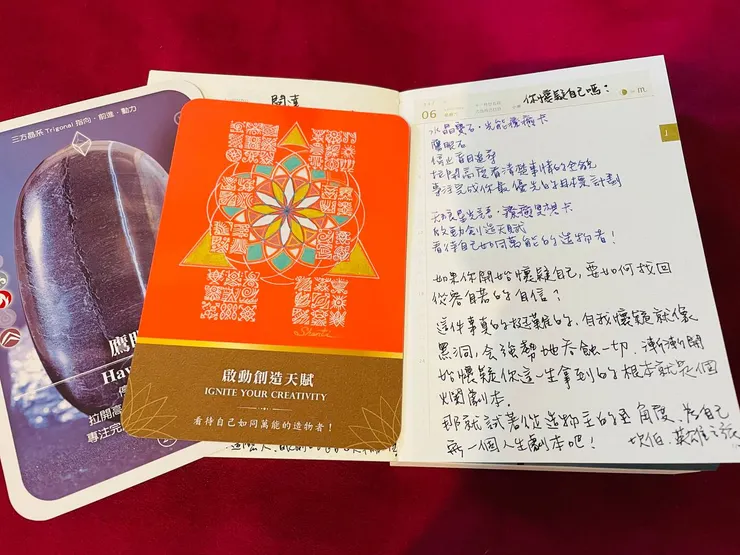 三方晶系 Trigonal 指向．前進．動力
鷹
Haw
拉開高
專注完
啟動創造天賦
IGNITE YOUR CREATIVITY
看待自己如同萬能的造物者！
開書
06
你懷疑自己嗎？
水晶寶石．光能療癒卡
鷹眼石
停止盲目追尋
拉開高度看清楚事情的全貌
專注完成你最優先的目標計劃
啟動創造天賦
看待自己如同萬能的造物者！
如果你開始懷疑自己，要如何找回
從容自若的自信？
這件事真的挺難的，自我懷疑就像
黑洞，會強勢地吞蝕一切，漸漸開
始懷疑你這一生拿到的根本就是個
爛劇本。
那就試著從造物主的 角度，為自己
一個人生劇本吧！